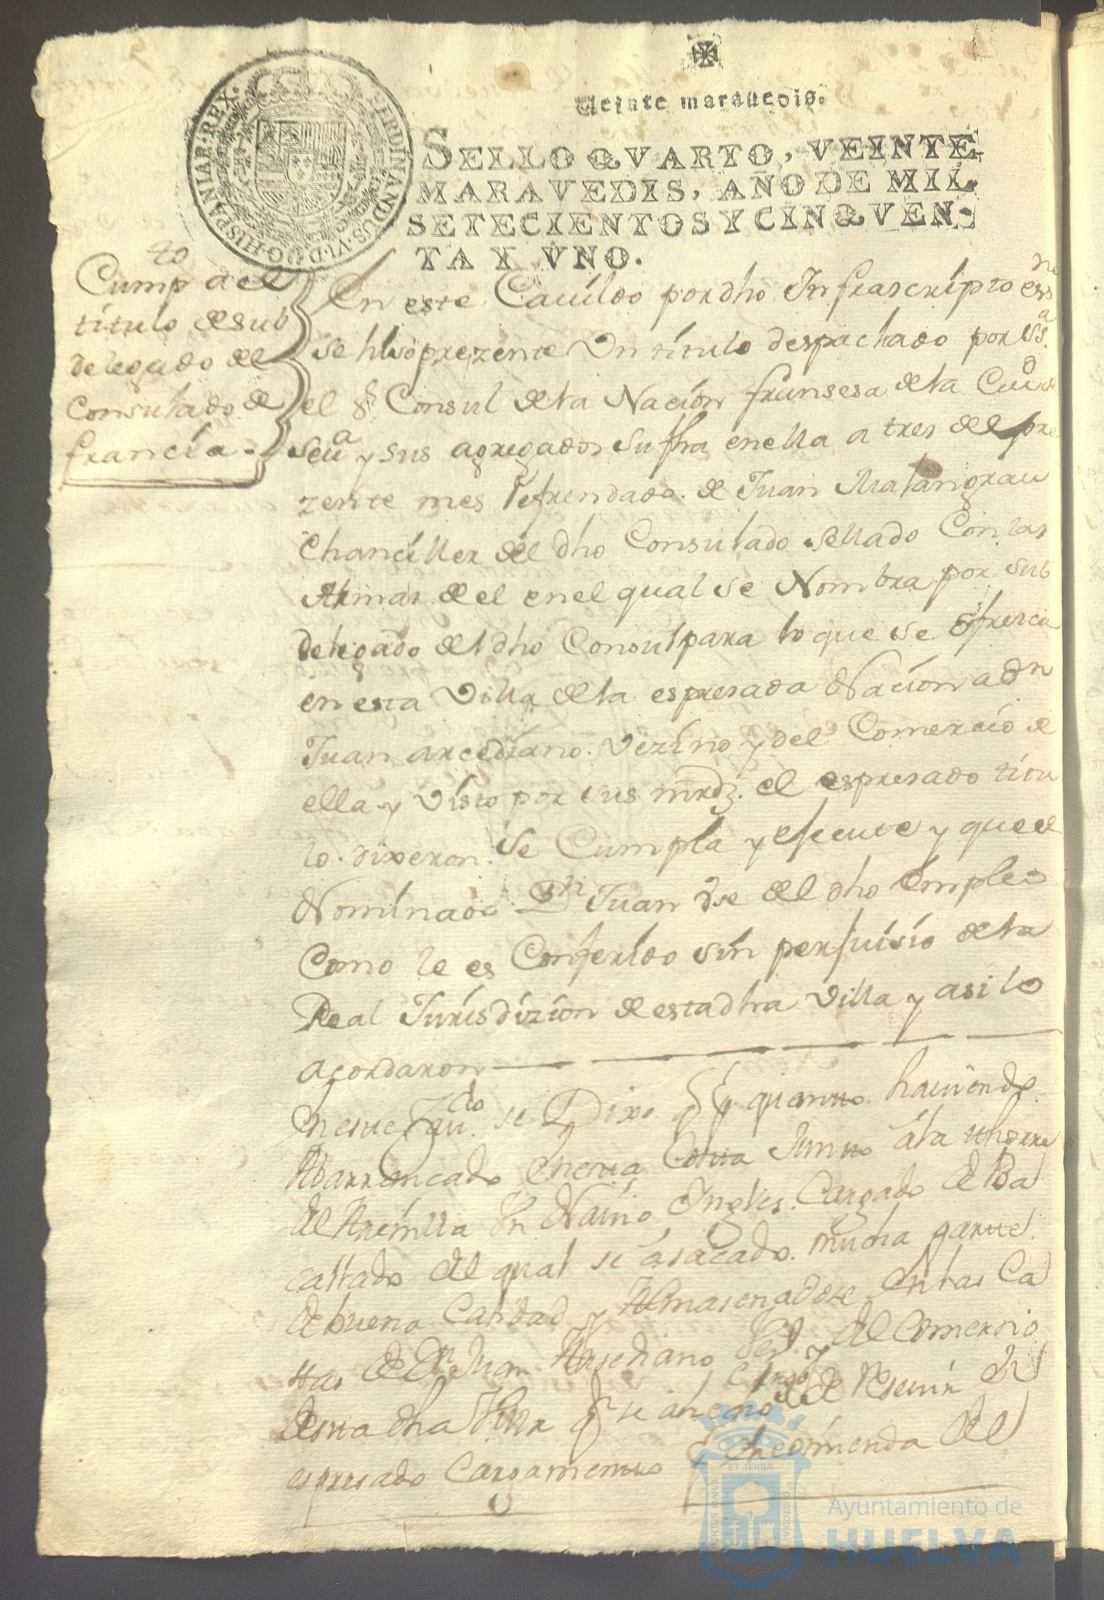 Veinte maravedis.
SELLO QVARTO, VEINTE
MARAVEDIS, AÑO DE MIL
SETECIENTOS Y CINQVEN-
TA Y VNO.
FERDINANDUS·VI·D·G·HISPANIAR·REX·
Cump.to a el
titulo de sub
delegado del
Consulado de
francia -
En este Cavildo por dho Infrascripto essno
se hiso prezente Un titulo despachado por
el Sr Consul de la Nacion fransesa de la Ciud de
Seva y sus agregados su fha en ella a tres del pre
zente mes Refrendado de Juan
Chanciller del dho Consulado sellado Con las
Armas de el en el qual se Nombra por sub
delegado del dho Consul para lo que se ofresca
en esta Villa de la espresada Nacion a Dn
Juan arcediano vezino y del Comercio de
ella y Visto por sus mrdz. el espresado titu
lo dixeron Se Cumpla y efecute y que el
Nominado Dn Juan Vse del dho Empleo
Como le es Conferido sin perjuisio de la
Real Jurisdizion de esta dha Villa y asi lo
acordaron
En este Cavdo se Dixo q quanto haviendo
Abarrancado En esta Costa Junto a la
del Aremilla Un Navio Ingles Cargado de Ba
callado del qual se a sacado mucha parte
de buena Calidad y Almasenadose En las Ca
sas de Dn Juan Arsediano Vº y del Comersio
desta dha Villa q se a de Reseuir El
espresado Cargamento Encomienda del
ET TERRÆ
Ayuntamiento de
HUELVA